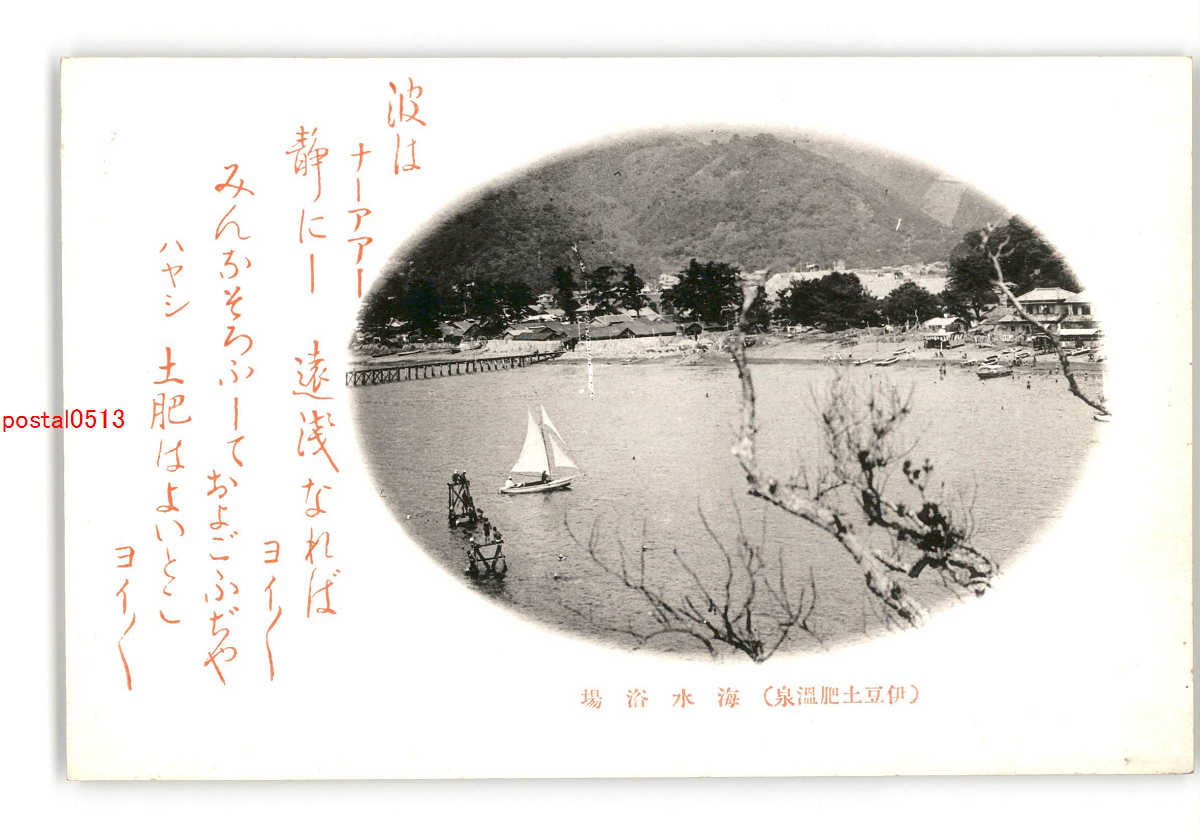 波は
ナーアアー
静にー 遠浅なれば
ヨイ〳〵
みんなそろふーて およごふぢや
ハヤシ 土肥はよいとこ
ヨイ〳〵
(伊豆土肥溫泉) 海水浴場
postal0513